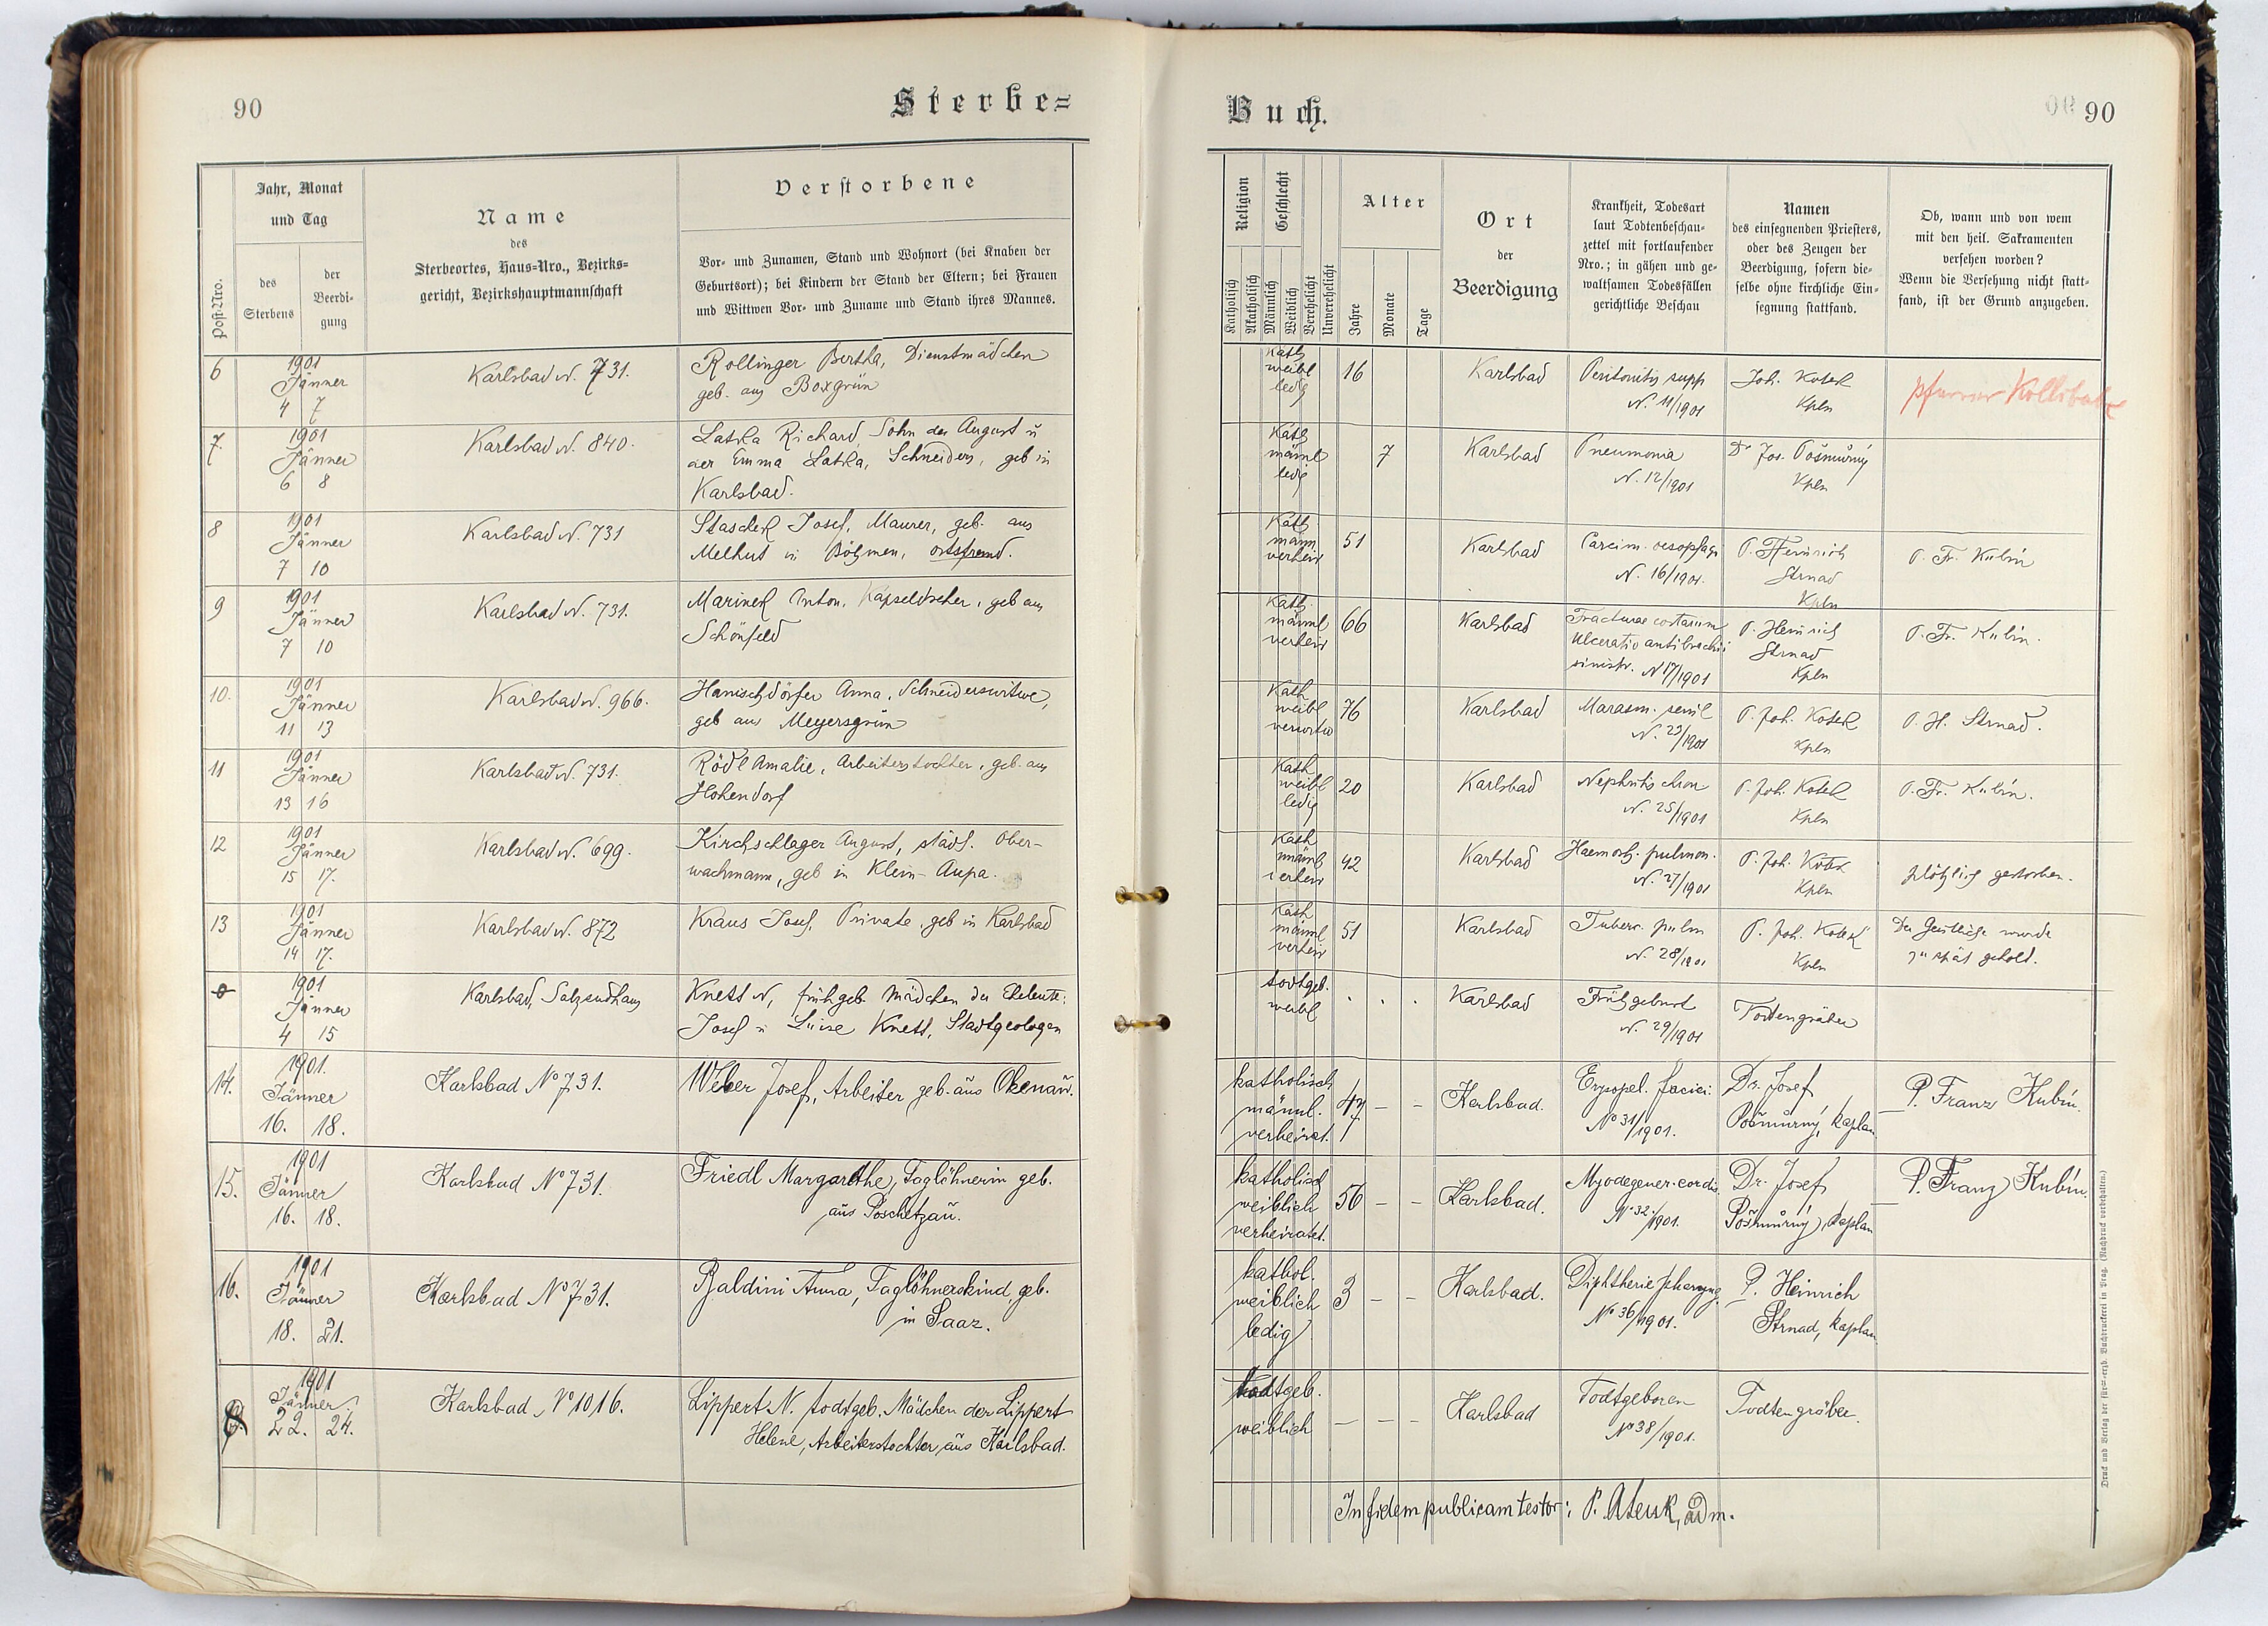 90
Sterbe=
Post-Nro.
Jahr, Monat
und Tag
des
Sterbens
der
Beerdi-
gung
Name
des
Sterbeortes, Haus-Nro., Bezirks-
gericht, Bezirkshauptmannschaft
Verstorbene
Vor- und Zunamen, Stand und Wohnort (bei Knaben der
Geburtsort); bei Kindern der Stand der Eltern; bei Frauen
und Wittwen Vor- und Zuname und Stand ihres Mannes.
6
1901
Jänner
4 7
Karlsbad N. 731.
Rollinger Bertha, Dienstmädchen
geb. aus Boxgrün
7.
1901
Jänner
6 8
Karlsbad N. 840.
Latka Richard, Sohn des August u
der Emma Latka, Schneiders, geb in
Karlsbad.
8
1901
Jänner
7 10
Karlsbad N. 731
Staschek Josef, Maurer, geb. aus
Melhut in Böhmen, ortsfremd.
9
1901
Jänner
7 10
Karlsbad N. 731.
Marinek Anton, Kapseldreher, geb aus
Schönfeld
10.
1901
Jänner
11 13
Karlsbad N. 966.
Hanischdörfer Anna, Schneiderswitwe,
geb aus Meyersgrün
11
1901
Jänner
13 16
Karlsbad N. 731.
Rödl Amalie, Arbeiterstochter, geb. aus
Hohendorf
12
1901
Jänner
15 17.
Karlsbad N. 699.
Kirchschlager August, städt. Ober-
wachmann, geb in Klein-Aupa.
13
1901
Jänner
14 17.
Karlsbad N. 872
Kraus Josef, Private, geb in Karlsbad
0
1901
Jänner
4 15
Karlsbad,
Knett N, frühgeb Mädchen der Eheleute:
Josef u Luise Knett, Stadtgeologen
14.
1901.
Jänner
16. 18.
Karlsbad No 731.
Weber Josef, Arbeiter geb. aus Okenau.
15.
1901
Jänner
16. 18.
Karlsbad No 731.
Friedl Margarethe, Taglöhnerin geb.
aus Poschetzau.
16.
1901
Jänner
18. 21.
Karlsbad No 731.
Baldini Anna, Taglöhnerskind, geb.
in Saaz.
1901
Jänner.
22. 24.
Karlsbad No 1016.
Lippert N. todtgeb. Mädchen der Lippert
Helene, Arbeiterstochter, aus Karlsbad.
Buch.
90
Religion
Katholisch
Akatholisch
Geschlecht
Männlich
Weiblich
Verehelicht
Unverehelicht
Alter
Jahre
Monate
Tage
Ort
der
Beerdigung
Krankheit, Todesart
laut Todtenbeschau-
zettel mit fortlaufender
Nro.; in gähen und ge-
waltsamen Todesfällen
gerichtliche Beschau
Namen
des einsegnenden Priesters,
oder des Zeugen der
Beerdigung, sofern die-
selbe ohne kirchliche Ein-
segnung stattfand.
Ob, wann und von wem
mit den heil. Sakramenten
versehen worden?
Wenn die Versehung nicht statt-
fand, ist der Grund anzugeben.
Kath
weibl
ledig
16
Karlsbad
Peritonitis supp
N. 11/1901
Joh. Kotek
Kpln
Pfarrer
Kath
männl
ledig
7
Karlsbad
Pneumonia
N. 12/1901
Dr Jos. Pošmůrný
Kpln
Kath
männ
verheir
51
Karlsbad
Carcim. oesophagi
N. 16/1901.
P. Heinrich
Strnad
Kpln
P. Fr. Kubín
Kath.
männl
verheir
66
Karlsbad
Fracturae costarum
Ulceratio antibrachii
sinistr. N 17/1901
P. Heinrich
Strnad
Kpln
P. Fr. Kubín.
Kath
weibl
verwitw
76
Karlsbad
Marasm. senil
N. 23/1901
P. Joh. Kotek
Kpln
P. H. Strnad.
Kath
weibl
ledig
20
Karlsbad
Nephritis chron
N. 25/1901
P. Joh. Kotek
Kpln
P. Fr. Kubín.
Kath
männl
verheir
42
Karlsbad
Haemorh. pulmon.
N. 27/1901
P. Joh. Kotek
Kpln
plötzlich gestorben.
Kath
männl
verheir
51
Karlsbad
Tuberc. pulm
N. 28/1901
P. Joh. Kotek
Kpln
Der Geistliche wurde
zu spät geholt.
todtgeb.
weibl
. . .
Karlsbad
Frühgeburt
N. 29/1901
Todtengräber
katholisch
männl.
verheirat.
47 - -
Karlsbad.
Erysipel. faciei.
No 31/1901.
Dr. Josef
Pošmůrný, kaplan
P. Franz Kubín.
katholisch
weiblich
verheiratet.
56 - -
Karlsbad.
Myodegener. cordis.
No 32./1901.
Dr. Josef
Pošmůrný, kaplan
P. Franz Kubín.
kathol.
weiblich
ledig
3 - -
Karlsbad.
Diphtherie pharyng.
No 36/1901.
P. Heinrich
Strnad, kaplan
todtgeb.
weiblich
- - -
Karlsbad
Todtgeboren
No 38/1901.
Todtengräber.
In fidem publicam testor: P. , adm.
Druck und Verlag der fürst-erzb. Buchdruckerei in Prag. (Nachdruck vorbehalten.)